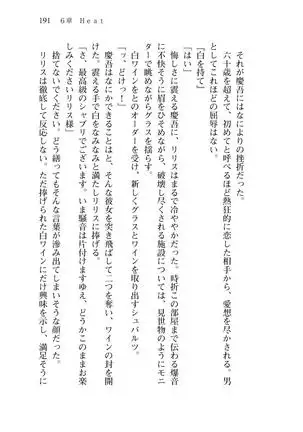 191　6章　Heat
それが慶吾にはなによりの挫折だった。
六十歳を超えて、初めてと呼べるほど熱狂的に恋した相手から、愛想を尽かされる。男
としてこれほどの屈辱はない。
「白を持て」
「はい」
悔しさに震える慶吾に、リリスはまるで冷ややかだった。時折この部屋まで伝わる爆音
に不快そうに眉をひそめながら、破壊し尽くされる施設については、見世物のようにモニ
ターで眺めながらグラスを揺らす。
白ワインをとのオーダーを受け、新しくグラスとワインを取り出すシュバルツ。
「ッ、どけっ！」
慶吾にできることはと、そんな彼女を突き飛ばして二つを奪い、ワインの封を開
け、震える手で白をなみなみと満たしリリスに捧げる。
「さ、最高級のシャブリでございます。いま騒音は片付けますゆえ、どうかこのままお楽
しみくださいリリス様」
捨てないでください。どう繕ってもそんな言葉が滲み出てしまいそうな顔だった。
リリスは徹底して反応しない。ただ捧げられた白ワインにだけ興味を示し、満足そうに